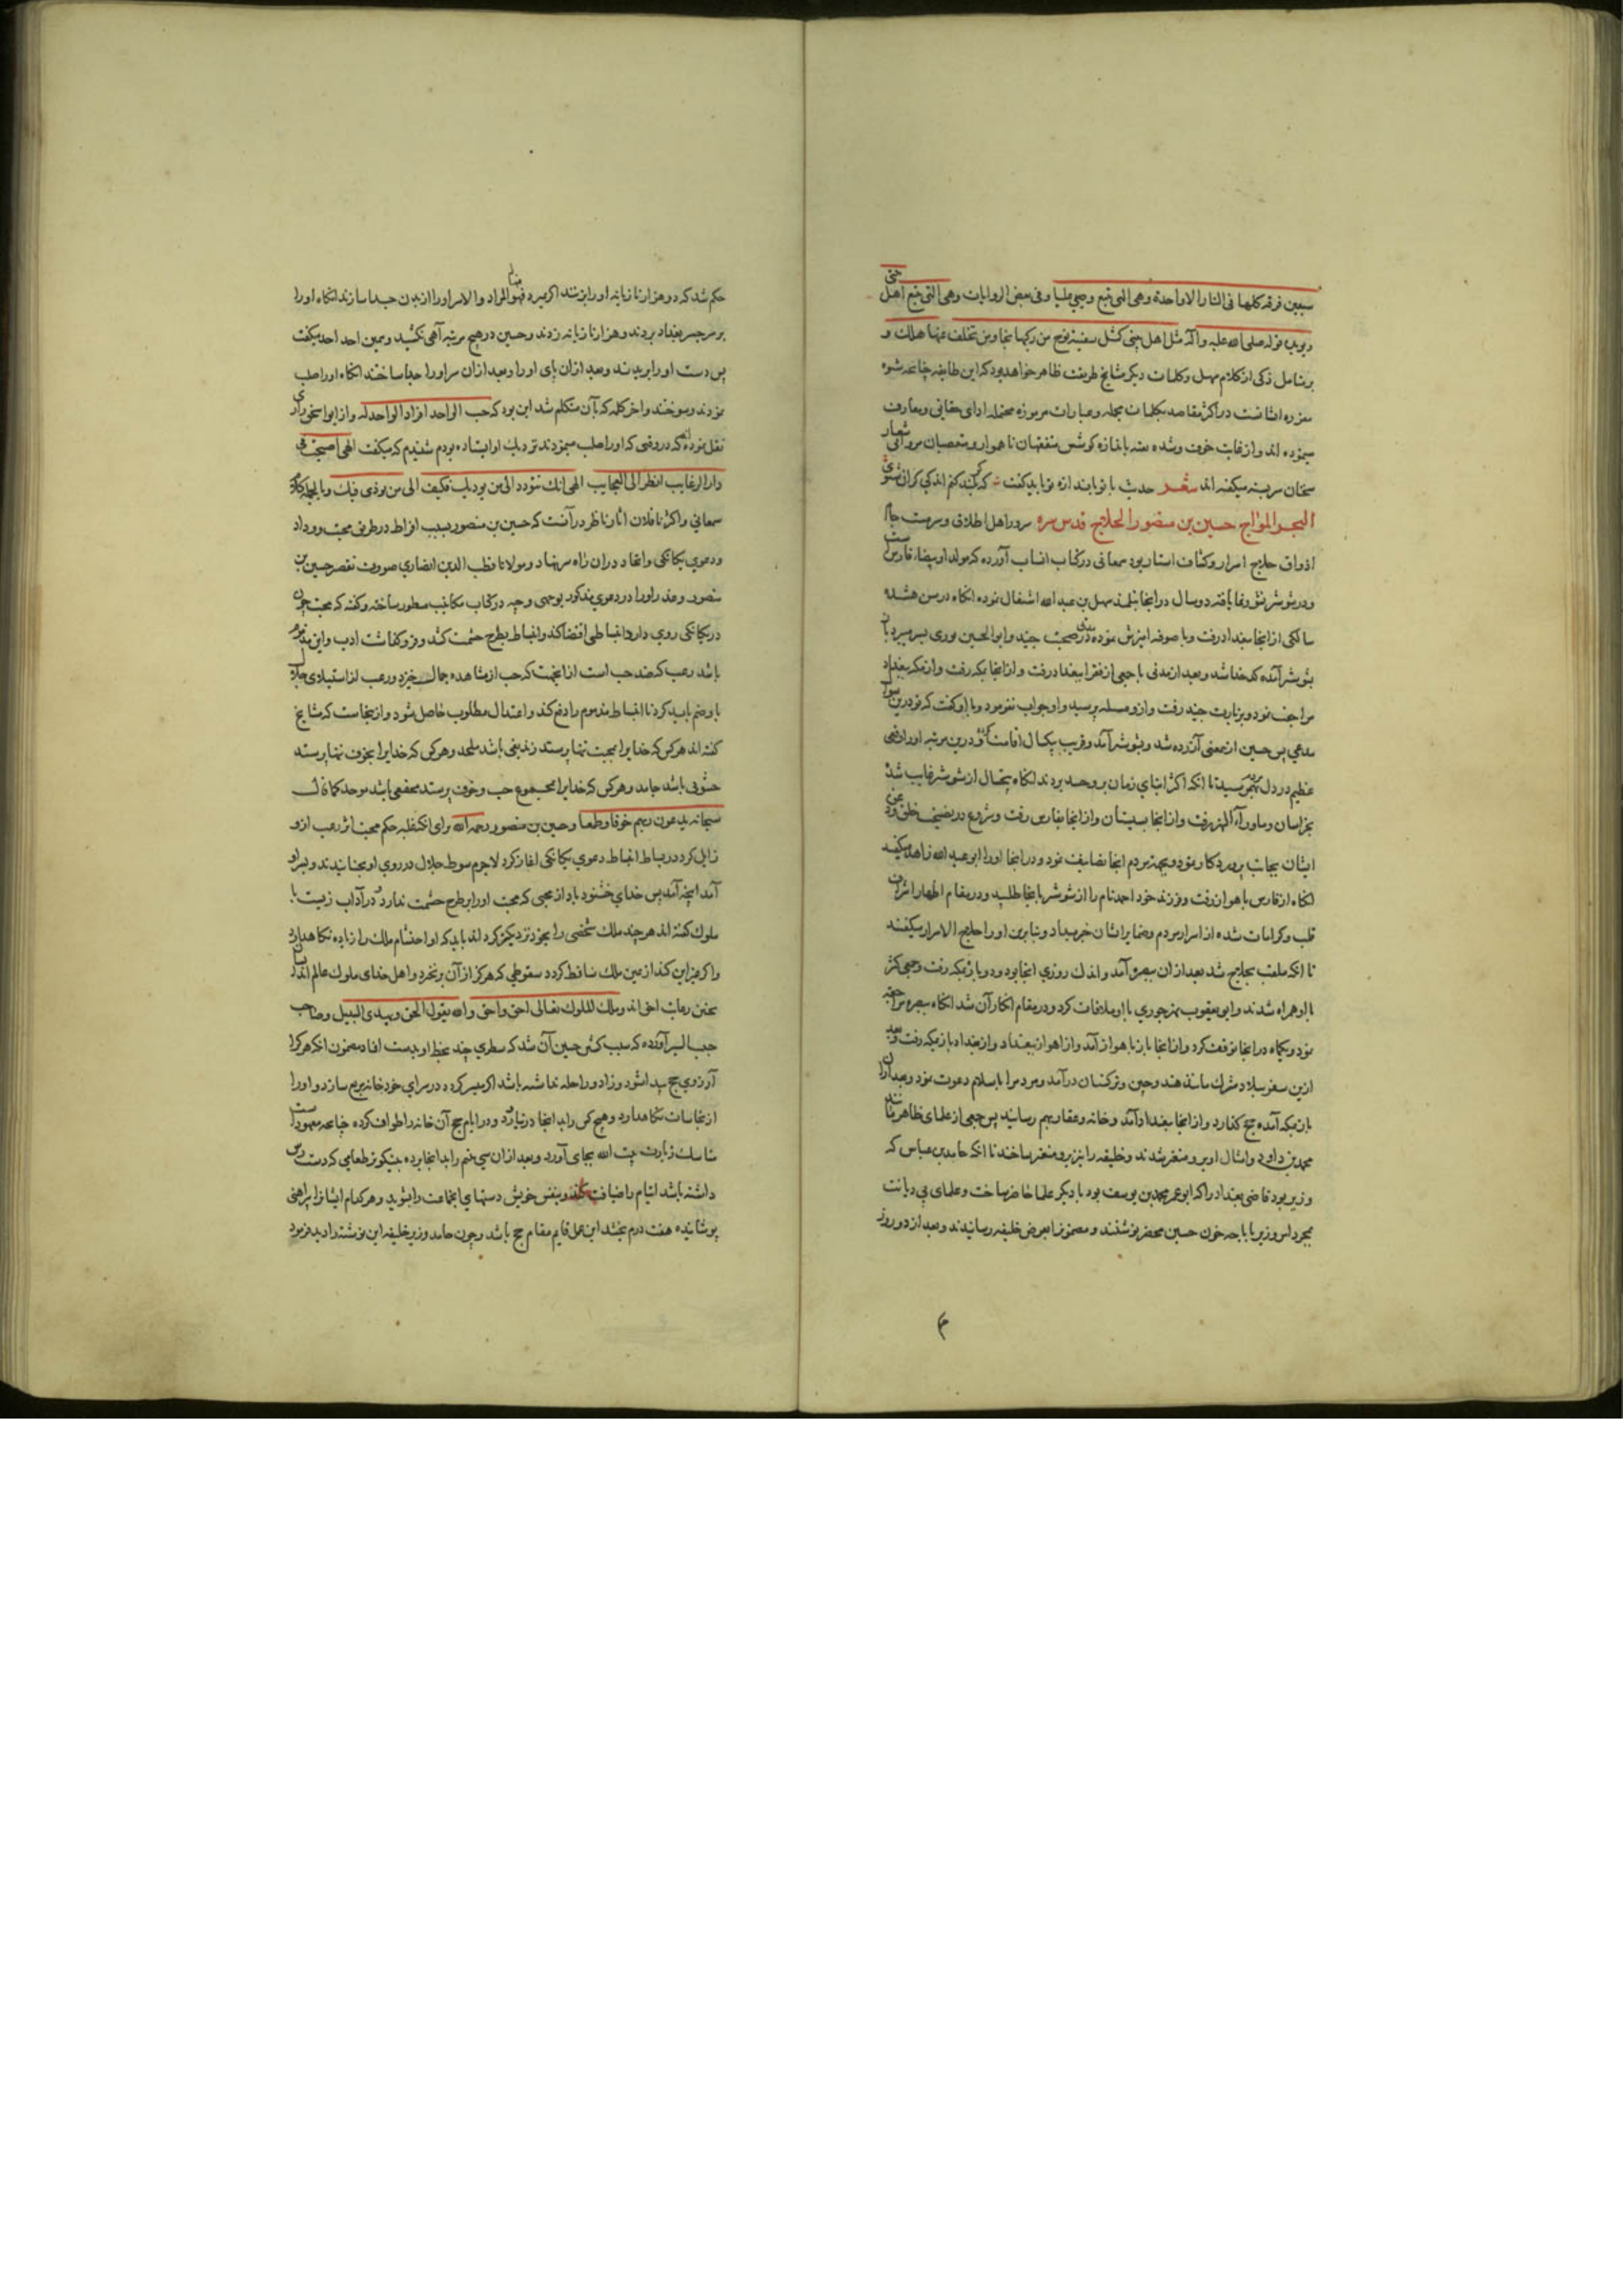 سبعین فرقه کلها فی النار الا واحدة وهی التی تتبع وصیی علیا وفی بعض الروایات وهی التی تتبع اهل بیتی
ویؤید قوله صلی الله علیه وآله مثل اهل بیتی کمثل سفینة نوح من رکبها نجا ومن تخلف عنها هلک و
بر متامل ذکی از کلام سهل وکلمات دیگر مشایخ طریقت ظاهر خواهد بود که این طایفه چنانچه شیوه
در اکثر مقاصد بکلمات مجمله وعبارات مرموزه ادای حقایق ومعارف
مینموده اند واز غایت خوف
سخنان سربسته میگفته اند شعر حدیث با تو باندازه تو باید گفت که کند کنم اندکی گران شنوی
البحر المواج حسین بن منصور الحلاج قدس سره سرور اهل اطلاق وسرمست جام
اذواق حلاج اسرار وکشاف استار بود سمعانی در کتاب انساب آورده که مولد او بیضاء فارس است
ودر شوشتر نشو ونما یافته ودو سال در انجا بتلمذ سهل بن عبد الله اشتغال نموده انکاه در سن هشده
سالکی از انجا ببغداد رفت وبا صوفیه امیزش نموده مدتی در صحبت جنید وابو الحسین نوری بسر میبرد باز
بشوشتر آمده کدخدا شد وبعد از مدتی با جمعی از فقرا ببغداد رفت واز انجا بمکه رفت واز مکه ببغداد
مراجعت نمود وبزیارت جنید رفت وازو مسله پرسید واو جواب نفرمود وبا او گفت که تو درین سوال
مدعی پس حسین ازین معنی آزرده شد وبشوشتر آمد وقریب یکسال اقامت کرد ودرین مرتبه او را وقعی
عظیم در دل مردم رسید تا انکه اکثر ابنای زمان برو حسد بردند انکاه پنجسال از شوشتر غایب شد
بخراسان وماوراء النهر رفت واز انجا بسیستان واز انجا بفارس رفت وشروع در نصیحت خلق ودعوت
ایشان بجانب پروردکار نمود وبجهة مردم انجا تصانیف نمود ودر انجا او را ابو عبد الله زاهد میگفتند
انکاه از فارس باهواز رفت وفرزند خود احمد نام را از شوشتر بانجا طلبید ودر مقام اظهار اشراف
قلب وکرامات شده از اسرار مردم وضمایر ایشان خبر میداد وبنابرین او را حلاج الاسرار میگفتند
تا انکه ملقب بحلاج شد بعد ازان ببصره آمد واندک روزی انجا بود ودوباره بمکه رفت وجمعی کثیر
با او همراه شدند وابو یعقوب نهرجوری با او ملاقات کرد ودر مقام انکار آن شد انکاه ببصره مراجعت
نمود ویکماه در انجا توقف کرد واز انجا باز باهواز آمد واز اهواز ببغداد واز بغداد باز بمکه رفت وبعد
ازین سفر ببلاد شرک مانند هند وچین وترکستان درآمد ومردم را باسلام دعوت نمود وبعد ازان
باز بمکه آمده حج کذارد واز انجا ببغداد آمد وخانه وعقار بهم رسانید پس جمعی از علمای ظاهر مانند
محمد بن داود وامثال او برو متغیر شدند وخلیفه را نیز برو متغیر ساختند تا انکه حامد بن عباس که
وزیر بود قاضی بغداد را که ابو عمر محمد بن یوسف بود با دیگر علما حاضر ساخت وعلمای بی دیانت
بمجرد امر وزیر باباحه خون حسین محضر نوشتند ومضمون را بعرض خلیفه رسانیدند وبعد از دو روز
حکم شد که دو هزار تازیانه او را بزنند اگر بمیرد فهو المراد والا سر او را از بدن جدا سازند انکاه او را
بر سر جسر بغداد بردند وهزار تازیانه زدند وحسین در هیچ مرتبه آهی نکشید وهمین احد احد میگفت
پس دست او را بریدند وبعد ازان پای او را وبعد ازان سر او را جدا ساختند انکاه او را صلب
نمودند وسوختند واخر کلمه که بآن متکلم شد این بود که حب الواحد افراد الواحد له واز ابو اسحق رازی
نقل نموده که در وقتی که او را صلب مینمودند نزدیک او ایستاده بودم شنیدم که میگفت الهی اصبحت فی
دار الرغایب انظر الی العجایب الهی انک تتودد الی من یؤذیک فکیف الی من یؤذی فیک وبالجمله کلام
سمعانی واکثر ناقلان اثار ناظر در آنست که حسین بن منصور بسبب افراط در طریق محبت ووداد
ودعوی یکانکی واتحاد دران راه سر بنهاد ومولانا قطب الدین انصاری صورت تقصیر حسین بن
منصور وعذر او را در دعوی مذکور بوجهی وجیه در کتاب مکاتیب مسطور ساخته وگفته که محبت چون
در یکانکی روی دارد انبساطی اقتضا کند وانبساط بطرح حشمت کشد وفرو کفاشت ادب واین مذموم
باشد رعب که ضد حب است از انجهت که حب از مشاهده جمال خیزد ورعب از استیلای جلال
باو ضم باید کرد تا انبساط مذموم را دفع کند واعتدال مطلوب حاصل شود واز ینجاست که مشایخ
گفته اند هر کس که خدا را بمحبت تنها پرستد زندیقی باشد ملحد وهر کس که خدا را بخوف تنها پرستد
حشوی باشد جامد وهر کس که خدا را بمجموع حب وخوف پرستد محققی باشد موحد کما قال
سبحانه یدعون ربهم خوفا وطمعا وحسین بن منصور رحمه الله برای انکه غلبه حکم محبت اثر رعب ازو
زایل کرد در بساط انبساط دعوی یکانکی اغاز کرد لاجرم سوط جلال در روی او بجنبانیدند وبر او
آمد انچه آمد پس خدای خشنود باد از محبی که محبت او را بر طرح حشمت ندارد ودر آداب زیست با
ملوک گفته اند هر چند ملک شخصی را بخود نزدیکتر کرداند باید که او احتشام ملک را زیاده نکاهدارد
واکر غیر این کند از عین ملک ساقط کردد سقوطی که هرکز از آن بر نخیزد واهل خدای ملوک عالم اند
بحسن رعایت احق اند وملک الملوک تعالی احق واحق والله یقول الحق ویهدی السبیل وصاحب
حبیب السیر آورده که سبب کشتن حسین آن شد که سطری چند بخط او بدست افتاد مضمون انکه هر کرا
آرزوی حج پیدا شود وزاد وراحله نداشته باشد اکر میسر کردد در سرای خود خانه مربع سازد واو را
از نجاسات نکاهدارد وهیچ کس را بدانجا در نیارد ودر ایام حج آن خانه را طواف کرده چنانچه معهود است
مناسک زیارت بیت الله بجای آورد وبعد ازان سی یتیم را بدانجا برده بنیکوتر طعامی که دست رس
داشته باشد ایتام را ضیافت کند وبنفس خویش دستهای انجماعت را بشوید وهر کدام ایشان را پیراهنی
پوشانیده هفت درم بخشد این عمل قایم مقام حج باشد وچون حامد وزیر خلیفه این نوشته را دید فرمود